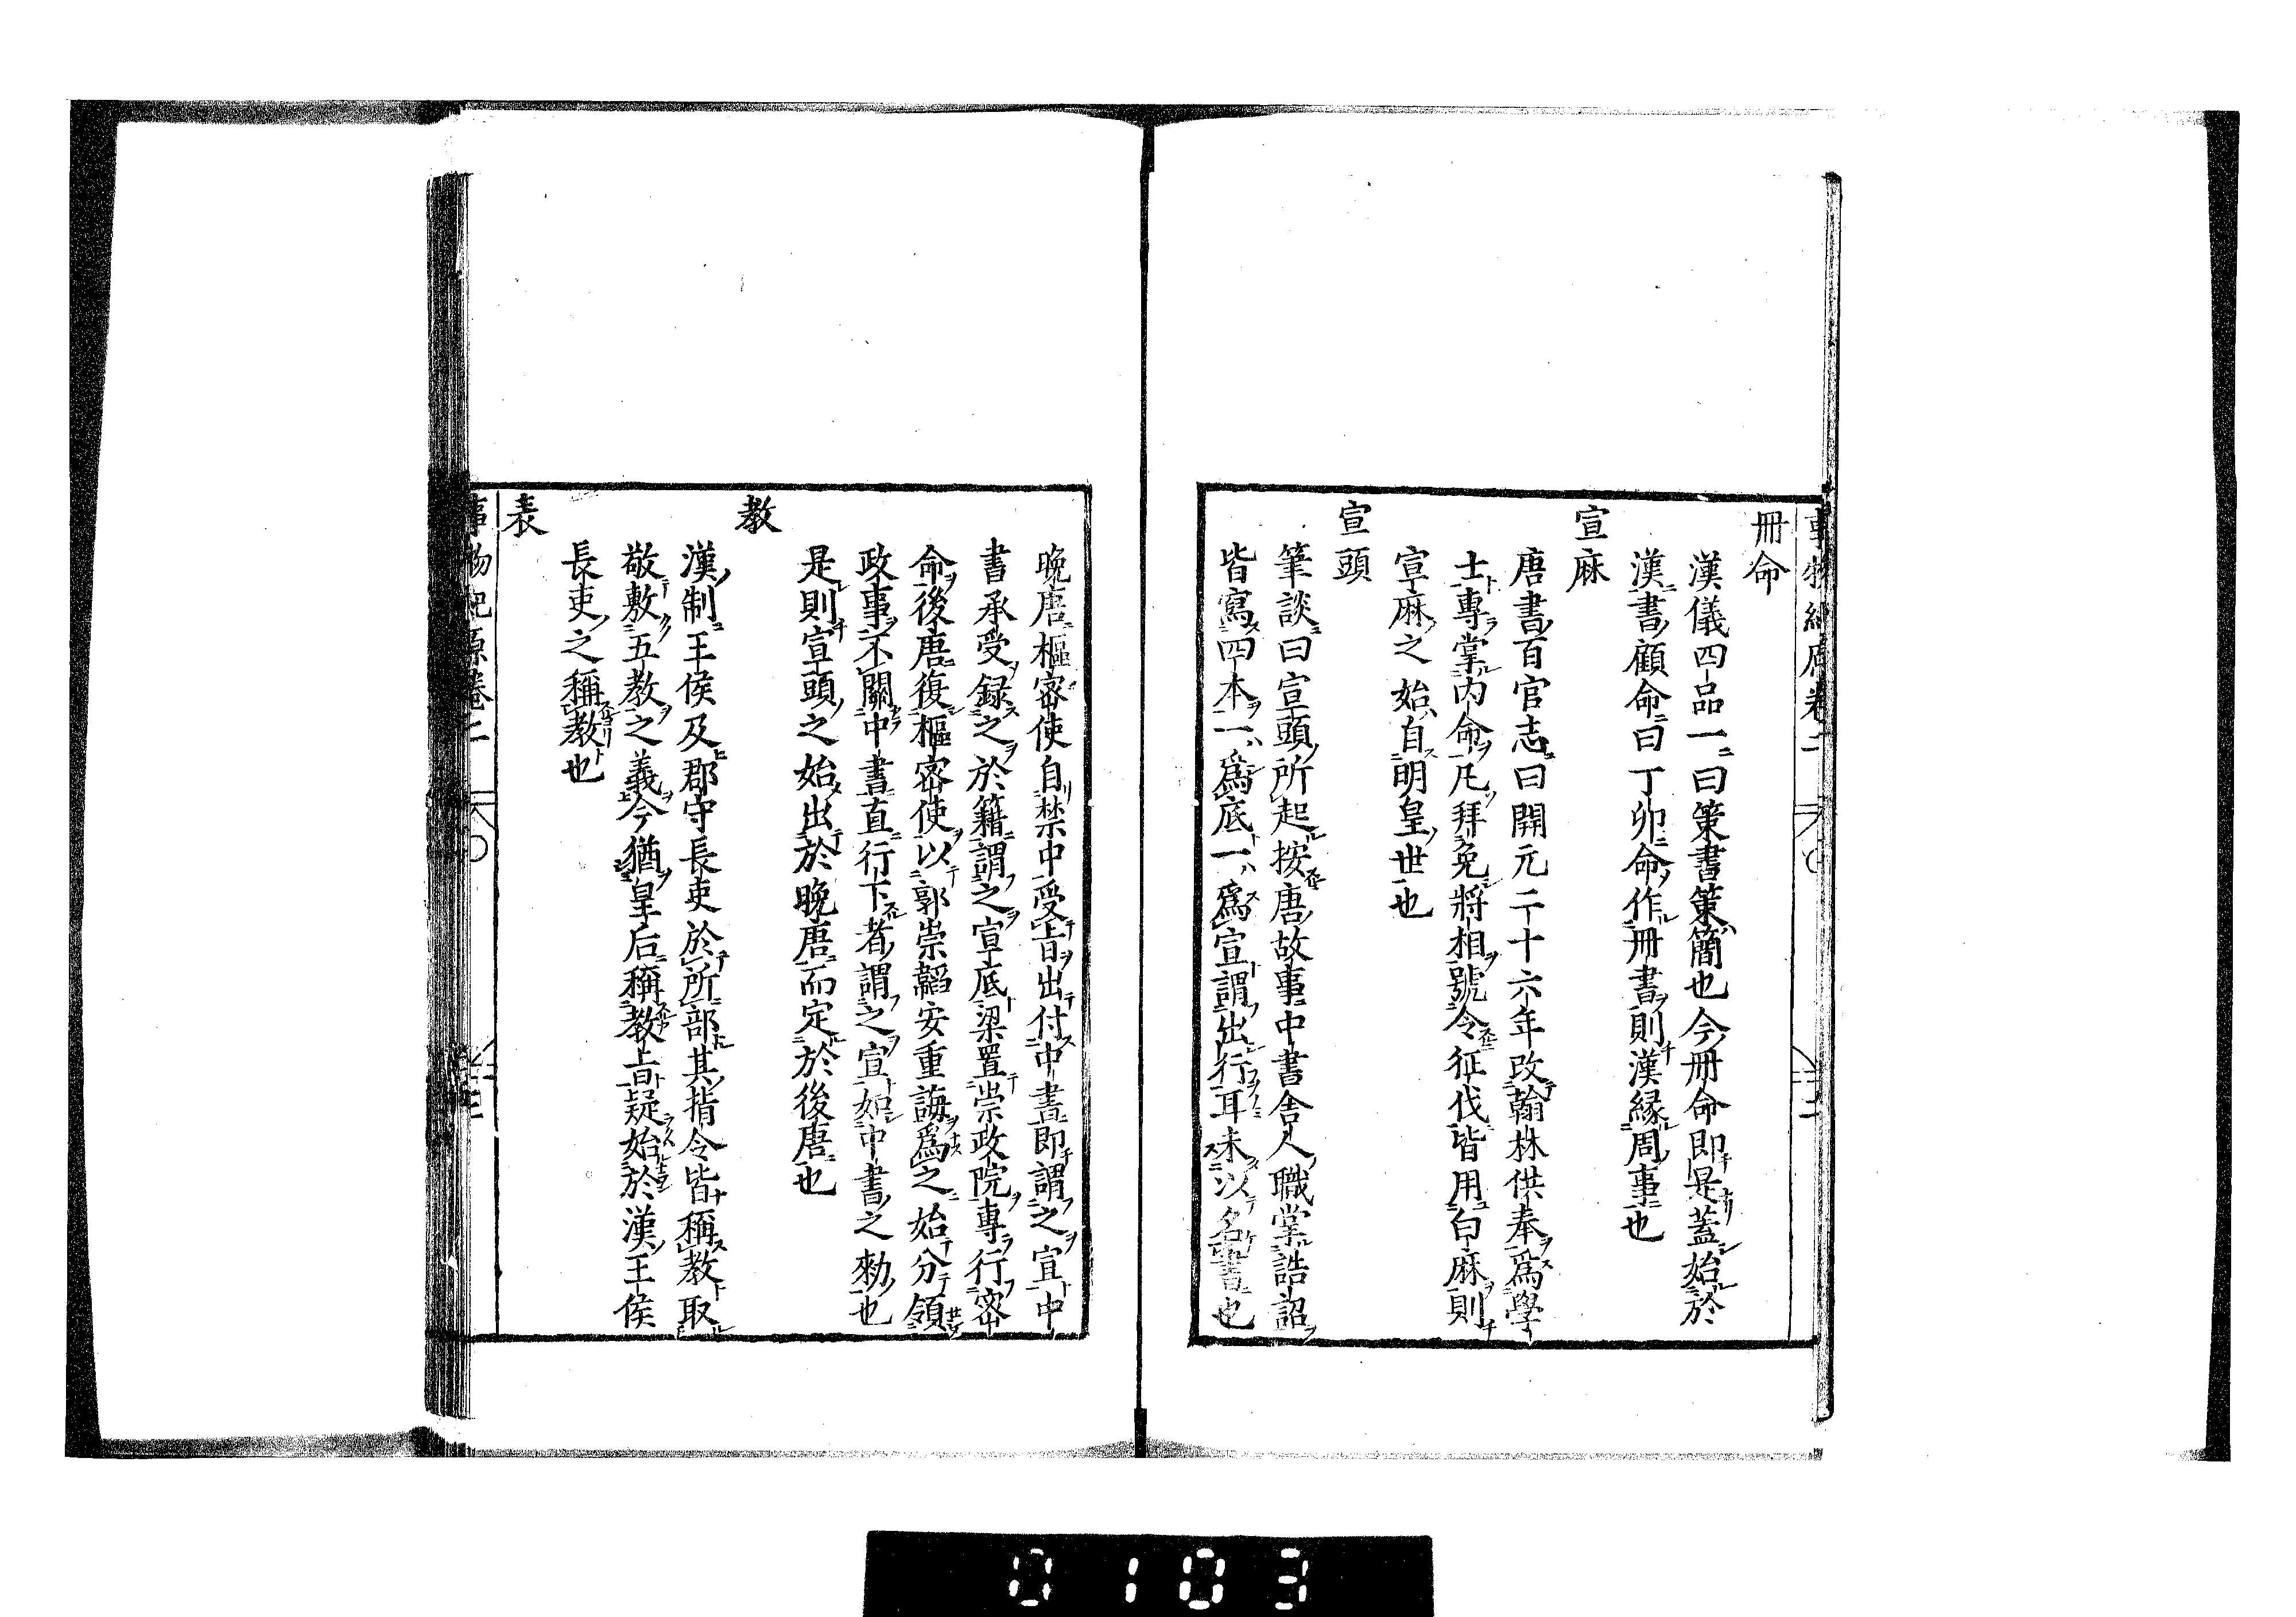 事物紀原卷二
冊命
漢儀四品一曰策書策簡也今冊命即是蓋始於
漢書顧命曰丁卯命作冊書則漢縁周事也
宣麻
唐書百官志曰開元二十六年改翰林供奉爲學
士專掌内命凡拜免將相號令征伐皆用白麻則
宣麻之始自明皇世也
宣頭
筆談曰宣頭所起按唐故事中書舎人職掌誥詔
皆寫四本一爲底一爲宣謂出行耳未以名書也
晩唐樞密使自禁中受旨出付中書即謂之宣中
書承受録之於籍謂之宣底梁置崇政院專行密
命後唐復樞密使以郭崇韜安重誨爲之始分領
政事不關中書直行下者謂之宣如中書之勑也
是則宣頭之始出於晩唐而定於後唐也
教
漢制王侯及郡守長吏於所部其指令皆稱教取
敬敷五教之義今猶皇后稱教旨疑始於漢王侯
長吏之稱教也
表
事物紀原卷二
0103